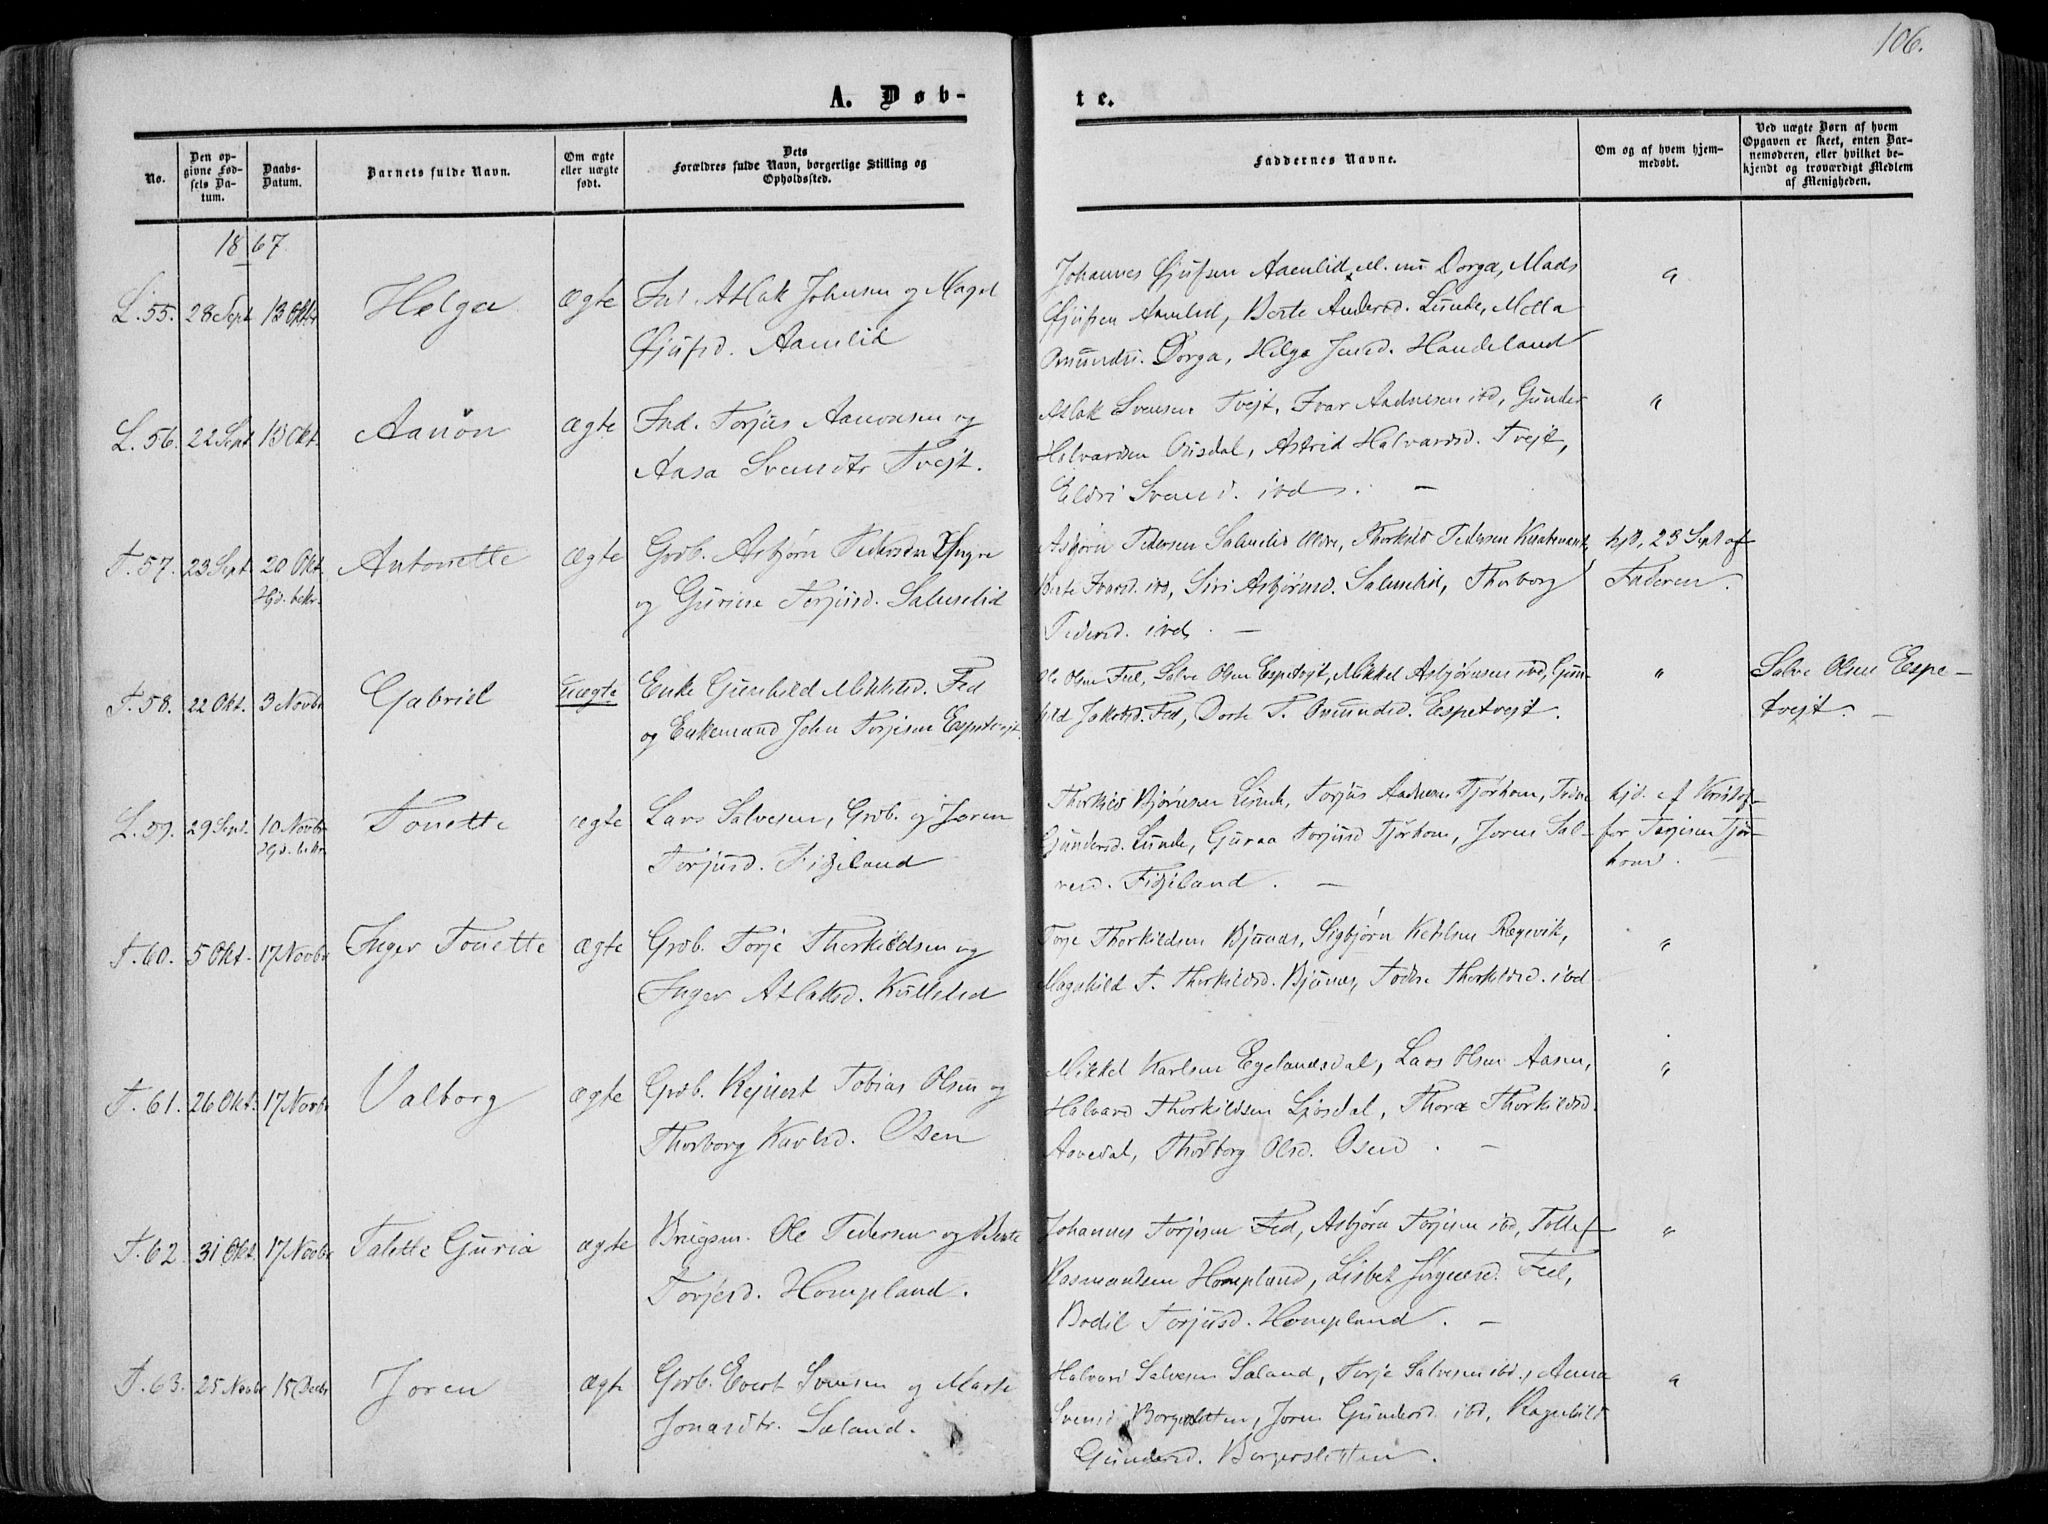 106.
A. Døb-
te.
No.
Den op-
givne Fød-
sels Da-
tum.
Daabs-
Datum.
Barnets fulde Navn.
Om ægte
eller uægte
født.
Dets
Forældres fulde Navn, borgerlige Stilling og
Opholdssted.
Faddernes Navne.
Om og af hvem hjem-
medøbt.
Ved uægte Børn af hvem
Opgaven er skeet, enten Bar-
nemoderen, eller hvilket be-
kjendt og troværdigt Medlem
af Menigheden.
1867.
L. 55. 28 Sept 13 Oktbr Helga ægte Atlak Johnsen og Magel
Gjufsd. Aamlid
Johannes Gjufsen Aamlid, Dorga, Mads
Gjufsen Aamlid, Berte Andersd. Lunde, Mella
Omundsd. Dorga, Helga Jensd. Haudeland
"
L. 56. 22 Sept 13 Okt. Aanøn ægte Ind. Torjus Aanonsen og
Aasa Svensdtr Tvejt.
Atlak Svensen Tvejt, Ivar Aadnesen ibd, Gunder
Halvardsen Ousdal, Astrid Halvardsd. Tvejt,
Eldri Svensd. ibd. —
"
F. 57. 23 Sept. 20 Okt. Antonette ægte Grdb. Asbjørn Pedersen Yngre
Hjd. bekr.
og Gurine Torjusd. Salmelid
Asbjørn Pedersen Salmelid Ældre, Thorkild Pedersen
Berte Ivarsd. ibd, Siri Asbjørnsd. Salmelid, Thorborg
Pedersd. ibd. —
hjd. 23 Sept af
Faderen.
F. 58. 22 Okt. 3 Novbr Gabriel uægte Enke Gunhild Mikkelsd. Fed
og Enkemand John Torjesen Espetvejt.
Ole Olsen Fed, Salve Olsen Espetvejt, Mikkel Asbjørnsen ibd, Gun-
hild Jakobsd. Fed, Dorte T. Omundsd. Espetvejt.
"
Salve Olsen Espe-
tvejt. —
L. 59. 29 Sept. 10 Novbr Tonette ægte Lars Salvesen, Grdb. og Joren
Hjd. bekr.
Torjusd. Fidjeland
Thorkild Bjørnsen Lunde, Torjus Aadnesen Tjørhom, Todne
Gundersd. Lunde, Guraa Torjusd Tjørhom, Joren Sal-
vesd. Fidjeland. —
hjd. af Kristof-
fer Torjesen Tjør-
hom. —
F. 60. 5 Okt. 17 Novbr Inger Tonette ægte Grdb. Torje Thorkildsen og
Inger Atlaksd. Kullelid
Torje Thorkildsen Bjunes, Sigbjørn Ketilsen Regevik,
Magnhild T. Thorkildsd. Bjunes, Todne Thorkildsd. ibd
"
F. 61. 26 Okt. 17 Novbr Valborg ægte Grdb. Rejnert Tobias Olsen og
Thorborg Karlsd. Osen
Mikkel Karlsen Egelandsdal, Lars Olsen Aasen,
Halvard Thorkildsen Ljosdal, Thora Thorkildsd.
Aavedal, Thorborg Olsd. Osen. —
"
F. 62. 31 Okt. 17 Novbr Talette Guria ægte Brugsm. Ole Pedersen og Bente
Torjesd. Hompland.
Johannes Torjesen Fed, Asbjørn Torjesen ibd, Tollef
Rasmundsen Hompland, Lisbet Jørgensd. Fed,
Bodil Torjusd. Hompland. —
"
F. 63. 25 Novbr 15 Decbr Joren ægte Grdb. Evert Svensen og Marte
Jonasdtr. Sæland.
Halvard Salvesen Sæland, Torje Salvesen ibd., Anna
Svensd Borgersletten, Joren Gundersd. ibd, Ragnhild
Gundersd. Borgersletten.
"